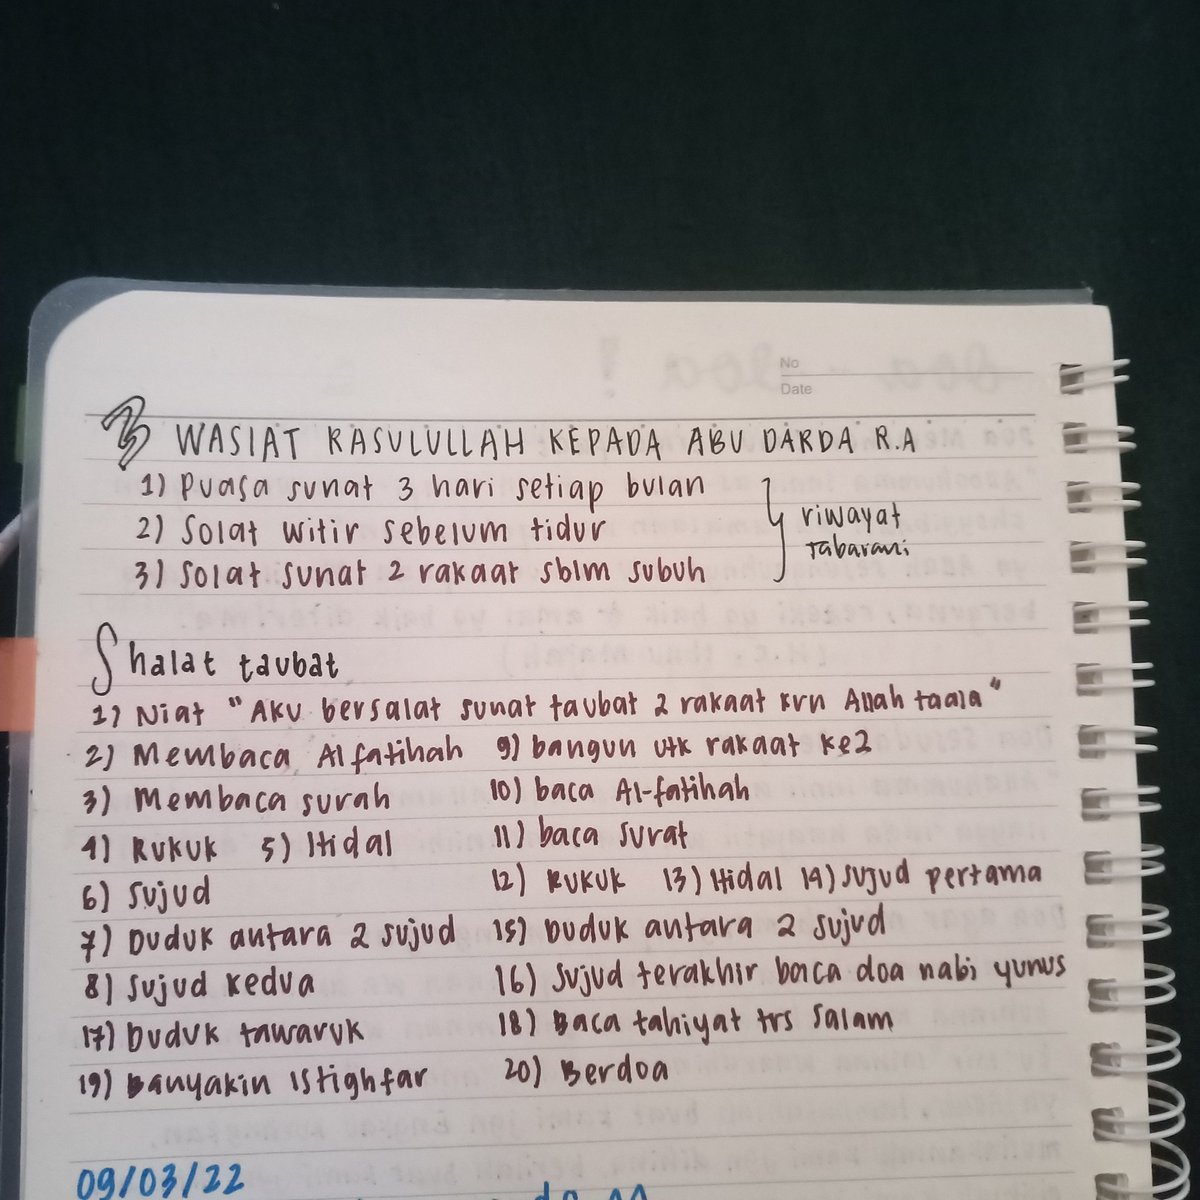 No
Date
3 WASIAT RASULULLAH KEPADA ABU DARDA R.A
1) Puasa sunat 3 hari setiap bulan
2) Solat witir sebelum tidur
3) Solat sunat 2 rakaat sblm subuh
riwayat
Tabarani
Shalat taubat
1) Niat "Aku bersalat sunat taubat 2 rakaat krn Allah taala"
2) Membaca Al fatihah 9) bangun utk rakaat ke2
3) Membaca surah 10) baca Al-fatihah
4) Rukuk 5) Itidal 11) baca surat
6) Sujud 12) Rukuk 13) Itidal 14) sujud pertama
7) Duduk antara 2 sujud 15) Duduk antara 2 sujud
8) Sujud kedua 16) Sujud terakhir baca doa nabi yunus
17) Duduk tawaruk 18) Baca tahiyat trs salam
19) Banyakin istighfar 20) Berdoa
09/03/22